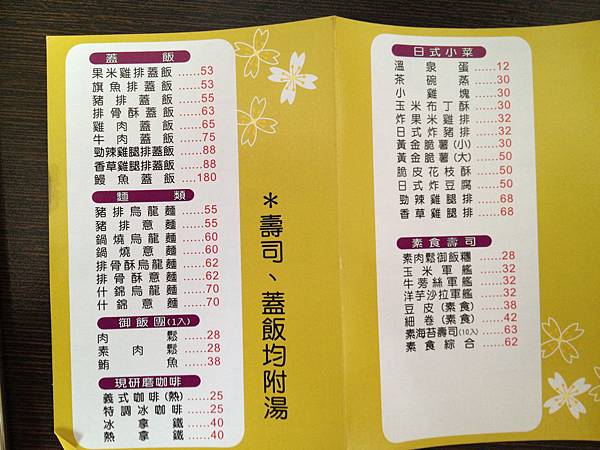 蓋飯
果米雞排蓋飯......53
旗魚排蓋飯......53
豬排蓋飯......55
排骨酥蓋飯......63
雞肉蓋飯......65
牛肉蓋飯......75
勁辣雞腿排蓋飯......88
香草雞腿排蓋飯......88
鰻魚蓋飯......180
麵類
豬排烏龍麵......55
豬排意麵......55
鍋燒烏龍麵......60
鍋燒意麵......60
排骨酥烏龍麵......62
排骨酥意麵......62
什錦烏龍麵......70
什錦意麵......70
御飯團(1入)
肉鬆......28
素肉鬆......28
鮪魚......38
現研磨咖啡
義式咖啡(熱)......25
特調冰咖啡......25
冰拿鐵......40
熱拿鐵......40
＊壽司、蓋飯均附湯
日式小菜
溫泉蛋......12
茶碗蒸......30
小雞塊......30
玉米布丁酥......30
炸果米雞排......32
日式炸豬排......32
黃金脆薯(小)......30
黃金脆薯(大)......50
脆皮花枝酥......50
日式炸豆腐......50
勁辣雞腿排......68
香草雞腿排......68
素食壽司
素肉鬆御飯糰......28
玉米軍艦......32
牛蒡絲軍艦......32
洋芋沙拉軍艦......32
豆皮(素食)......38
細卷(素食)......42
素海苔壽司(10入)......63
素食綜合......62